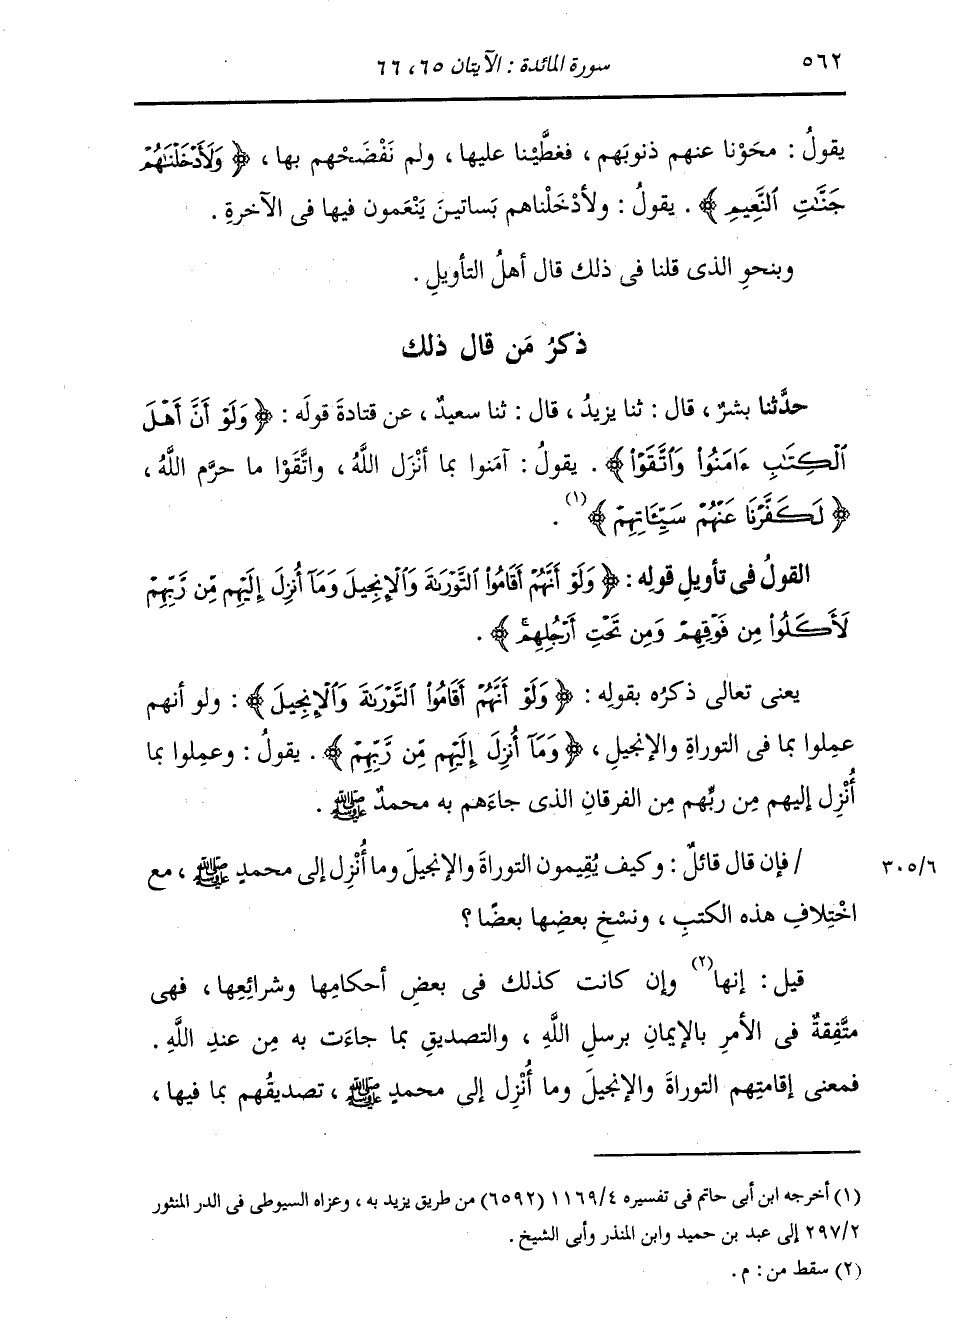 ٥٦٢ سورة المائدة : الآيتان ٦٥، ٦٦
يقولُ : محَوْنا عنهم ذنوبَهم ، فغطَّيْنا عليها ، ولم نَفْضَحْهم بها ، ﴿ وَلَأَدْخَلْنَٰهُمْ
جَنَّٰتِ ٱلنَّعِيمِ ﴾ . يقولُ : ولأدْخَلْناهم بَساتينَ يَنْعَمون فيها فى الآخرةِ .
وبنحوِ الذى قلنا فى ذلك قال أهلُ التأويلِ .
ذكرُ مَن قال ذلك
حدَّثنا بشرٌ ، قال : ثنا يزيدُ ، قال : ثنا سعيدٌ ، عن قتادةَ قولَه : ﴿ وَلَوْ أَنَّ أَهْلَ
ٱلْكِتَٰبِ ءَامَنُوا۟ وَٱتَّقَوْا۟ ﴾ . يقولُ : آمَنوا بما أنْزَل اللَّهُ ، واتَّقَوْا ما حرَّم اللَّهُ ،
﴿ لَكَفَّرْنَا عَنْهُمْ سَيِّـَٔاتِهِمْ ﴾ (١) .
القولُ فى تأويلِ قولِه : ﴿ وَلَوْ أَنَّهُمْ أَقَامُوا۟ ٱلتَّوْرَىٰةَ وَٱلْإِنجِيلَ وَمَآ أُنزِلَ إِلَيْهِم مِّن رَّبِّهِمْ
لَأَكَلُوا۟ مِن فَوْقِهِمْ وَمِن تَحْتِ أَرْجُلِهِمۚ ﴾ .
يعنى تعالى ذكرُه بقولِه : ﴿ وَلَوْ أَنَّهُمْ أَقَامُوا۟ ٱلتَّوْرَىٰةَ وَٱلْإِنجِيلَ ﴾ : ولو أنهم
عمِلوا بما فى التوراةِ والإنجيلِ ، ﴿ وَمَآ أُنزِلَ إِلَيْهِم مِّن رَّبِّهِمْ ﴾ . يقولُ : وعمِلوا بما
أُنْزِل إليهم مِن ربِّهم مِن الفرقانِ الذى جاءَهم به محمدٌ ﷺ .
٣٠٥/٦ / فإن قال قائلٌ : وكيف يُقِيمون التوراةَ والإنجيلَ وما أُنْزِل إلى محمدٍ ﷺ ، مع
اخْتِلافِ هذه الكتبِ ، ونسْخِ بعضِها بعضًا ؟
قيل : إنها (٢) وإن كانت كذلك فى بعضِ أحكامِها وشرائِعِها ، فهى
متَّفِقةٌ فى الأمرِ بالإيمانِ برسلِ اللَّهِ ، والتصديقِ بما جاءَت به مِن عندِ اللَّهِ .
فمعنى إقامتِهم التوراةَ والإنجيلَ وما أُنْزِل إلى محمدٍ ﷺ ، تصديقُهم بما فيها ،
(١) أخرجه ابن أبى حاتم فى تفسيره ١١٦٩/٤ (٦٥٩٢) من طريق يزيد به ، وعزاه السيوطى فى الدر المنثور
٢٩٧/٢ إلى عبد بن حميد وابن المنذر وأبى الشيخ .
(٢) سقط من : م .